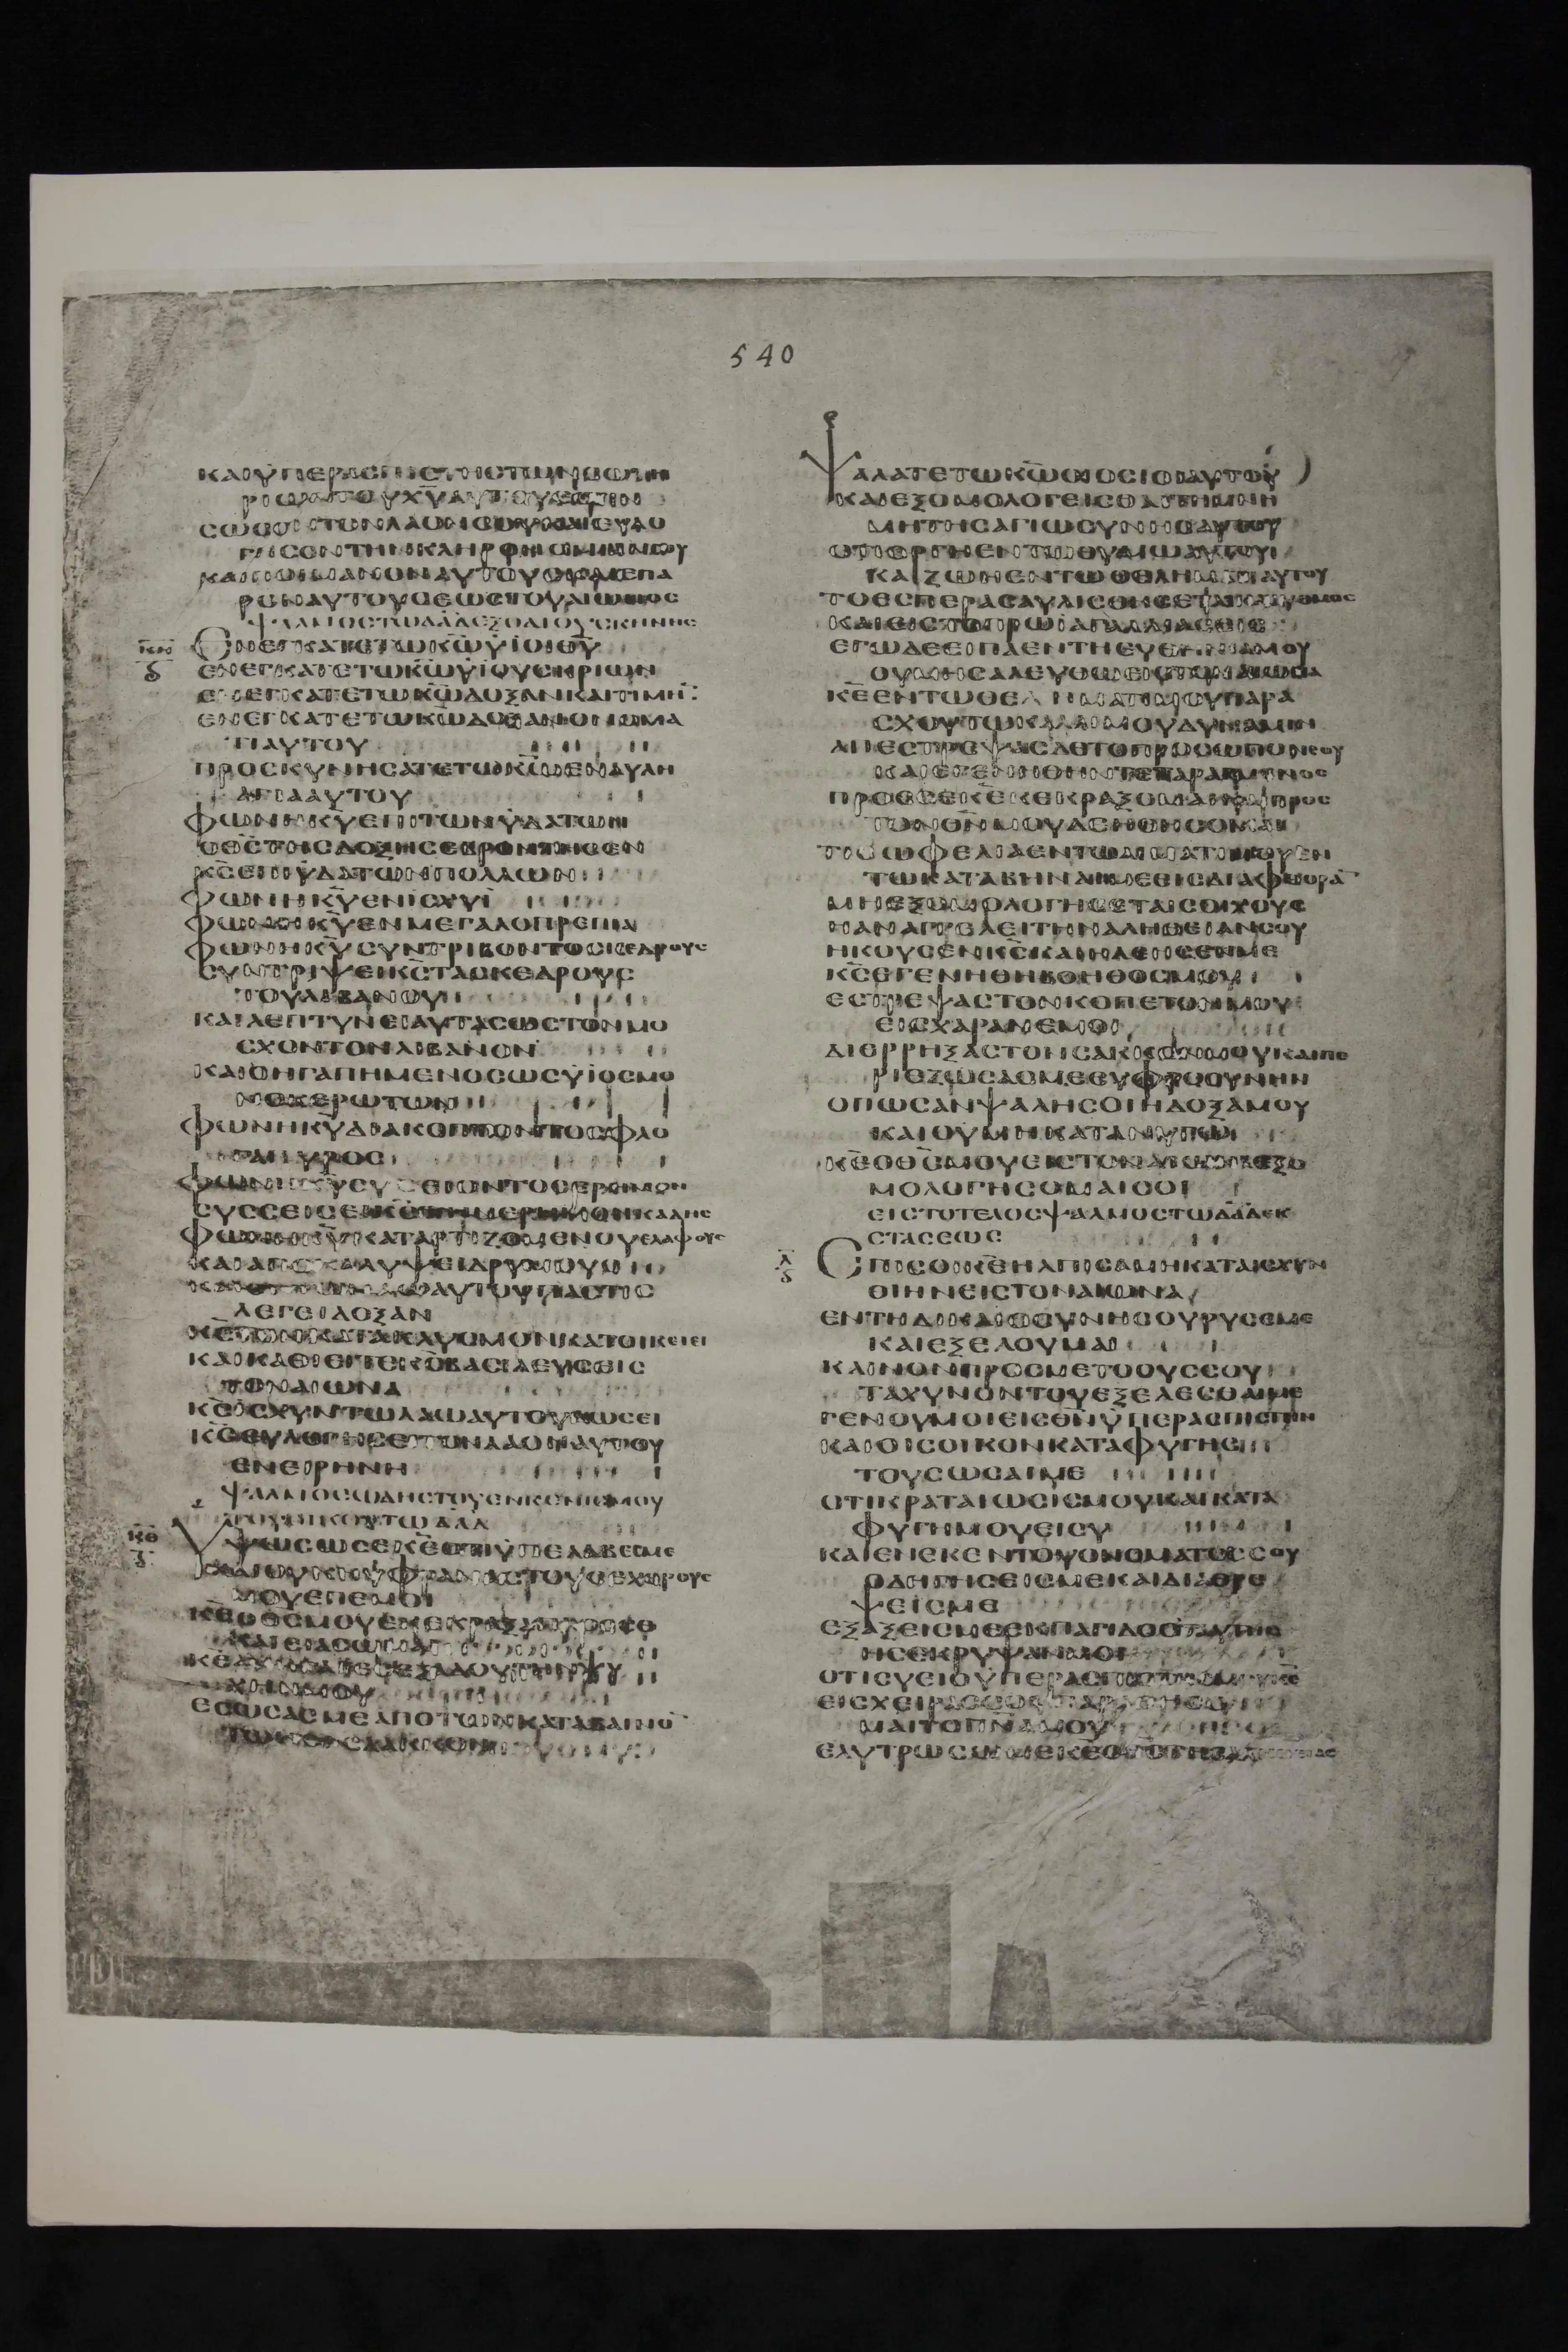 540
ΚΑΙ ΥΠΕΡΑϹΠΙϹΤΗϹ ΤΩΝ ϹΩΤΗ
ΡΙΩΝ ΤΟΥ ΧΥ ΑΥΤΟΥ ΕϹΤΙΝ
ϹΩϹΟΝ ΤΟΝ ΛΑΟΝ ϹΟΥ ΚΑΙ ΕΥΛΟ
ΓΗϹΟΝ ΤΗΝ ΚΛΗΡΟΝΟΜΙΑΝ ϹΟΥ
ΚΑΙ ΠΟΙΜΑΝΟΝ ΑΥΤΟΥϹ ΚΑΙ ΕΠΑ
ΡΟΝ ΑΥΤΟΥϹ ΕΩϹ ΤΟΥ ΑΙΩΝΟϹ
ΨΑΛΜΟϹ ΤΩ ΔΑΔ ΕΞΟΔΙΟΥ ϹΚΗΝΗϹ
ΚΗ
ΕΝΕΓΚΑΤΕ ΤΩ ΚΩ ΥΙΟΙ ΘΥ
ΕΝΕΓΚΑΤΕ ΤΩ ΚΩ ΥΙΟΥϹ ΚΡΙΩΝ
ΕΝΕΓΚΑΤΕ ΤΩ ΚΩ ΔΟΞΑΝ ΚΑΙ ΤΙΜΗ
ΕΝΕΓΚΑΤΕ ΤΩ ΚΩ ΔΟΞΑΝ ΟΝΟΜΑ
ΤΙ ΑΥΤΟΥ
ΠΡΟϹΚΥΝΗϹΑΤΕ ΤΩ ΚΩ ΕΝ ΑΥΛΗ
ΑΓΙΑ ΑΥΤΟΥ
ΦΩΝΗ ΚΥ ΕΠΙ ΤΩΝ ΥΔΑΤΩΝ
Ο ΘϹ ΤΗϹ ΔΟΞΗϹ ΕΒΡΟΝΤΗϹΕΝ
ΚϹ ΕΠΙ ΥΔΑΤΩΝ ΠΟΛΛΩΝ
ΦΩΝΗ ΚΥ ΕΝ ΙϹΧΥΙ
ΦΩΝΗ ΚΥ ΕΝ ΜΕΓΑΛΟΠΡΕΠΙΑ
ΦΩΝΗ ΚΥ ϹΥΝΤΡΙΒΟΝΤΟϹ ΚΕΔΡΟΥϹ
ϹΥΝΤΡΙΨΕΙ ΚϹ ΤΑϹ ΚΕΔΡΟΥϹ
ΤΟΥ ΛΙΒΑΝΟΥ
ΚΑΙ ΛΕΠΤΥΝΕΙ ΑΥΤΑϹ ΩϹ ΤΟΝ ΜΟ
ϹΧΟΝ ΤΟΝ ΛΙΒΑΝΟΝ
ΚΑΙ Ο ΗΓΑΠΗΜΕΝΟϹ ΩϹ ΥΙΟϹ ΜΟ
ΝΟΚΕΡΩΤΩΝ
ΦΩΝΗ ΚΥ ΔΙΑΚΟΠΤΟΝΤΟϹ ΦΛΟ
ΓΑ ΠΥΡΟϹ
ΦΩΝΗ ΚΥ ϹΥϹϹΕΙΟΝΤΟϹ ΕΡΗΜΟΝ
ϹΥϹϹΕΙϹΕΙ ΚϹ ΤΗΝ ΕΡΗΜΟΝ ΚΑΔΗϹ
ΦΩΝΗ ΚΥ ΚΑΤΑΡΤΙΖΟΜΕΝΟΥ ΕΛΑΦΟΥϹ
ΚΑΙ ΑΠΟΚΑΛΥΨΕΙ ΔΡΥΜΟΥϹ
ΚΑΙ ΕΝ ΤΩ ΝΑΩ ΑΥΤΟΥ ΠΑϹ ΤΙϹ
ΛΕΓΕΙ ΔΟΞΑΝ
ΚϹ ΤΟΝ ΚΑΤΑΚΛΥϹΜΟΝ ΚΑΤΟΙΚΕΙΕΙ
ΚΑΙ ΚΑΘΙΕΙΤΕ ΚϹ ΒΑϹΙΛΕΥϹ ΕΙϹ
ΤΟΝ ΑΙΩΝΑ
ΚϹ ΙϹΧΥΝ ΤΩ ΛΑΩ ΑΥΤΟΥ ΔΩϹΕΙ
ΚϹ ΕΥΛΟΓΗϹΕΙ ΤΟΝ ΛΑΟΝ ΑΥΤΟΥ
ΕΝ ΕΙΡΗΝΗ
ΨΑΛΜΟϹ ΩΔΗϹ ΤΟΥ ΕΝΚΕΝΙϹΜΟΥ
ΤΟΥ ΟΙΚΟΥ ΤΩ ΔΑΔ
ΚΘ
ΥΨΩϹΩ ϹΕ ΚΕ ΟΤΙ ΥΠΕΛΑΒΕϹ ΜΕ
ΚΑΙ ΟΥΚ ΗΥΦΡΑΝΑϹ ΤΟΥϹ ΕΧΘΡΟΥϹ
ΜΟΥ ΕΠ ΕΜΟΙ
ΚΕ Ο ΘϹ ΜΟΥ ΕΚΕΚΡΑΞΑ ΠΡΟϹ ϹΕ
ΚΑΙ ΕΙΑϹΩ ΜΕ
ΚΕ ΑΝΗΓΑΓΕϹ ΕΞ ΑΔΟΥ ΤΗΝ ΨΥ
ΧΗΝ ΜΟΥ
ΕϹΩϹΑϹ ΜΕ ΑΠΟ ΤΩΝ ΚΑΤΑΒΑΙΝΟ
ΤΩΝ ΕΙϹ ΛΑΚΚΟΝ
ΨΑΛΑΤΕ ΤΩ ΚΩ ΟΙ ΟϹΙΟΙ ΑΥΤΟΥ
ΚΑΙ ΕΞΟΜΟΛΟΓΕΙϹΘΑΙ ΤΗ ΜΝΗ
ΜΗ ΤΗϹ ΑΓΙΩϹΥΝΗϹ ΑΥΤΟΥ
ΟΤΙ ΟΡΓΗ ΕΝ ΤΩ ΘΥΜΩ ΑΥΤΟΥ
ΚΑΙ ΖΩΗ ΕΝ ΤΩ ΘΕΛΗΜΑΤΙ ΑΥΤΟΥ
ΤΟ ΕϹΠΕΡΑϹ ΑΥΛΙϹΘΗϹΕΤΑΙ ΚΛΑΥΘΜΟϹ
ΚΑΙ ΕΙϹ ΤΟ ΠΡΩΙ ΑΓΑΛΛΙΑϹΕΙϹ
ΕΓΩ ΔΕ ΕΙΠΑ ΕΝ ΤΗ ΕΥΘΗΝΙΑ ΜΟΥ
ΟΥ ΜΗ ϹΑΛΕΥΘΩ ΕΙϹ ΤΟΝ ΑΙΩΝΑ
ΚΕ ΕΝ ΤΩ ΘΕΛΗΜΑΤΙ ϹΟΥ ΠΑΡΑ
ϹΧΟΥ ΤΩ ΚΑΛΛΙ ΜΟΥ ΔΥΝΑΜΙΝ
ΑΠΕϹΤΡΕΨΑϹ ΔΕ ΤΟ ΠΡΟϹΩΠΟΝ ϹΟΥ
ΚΑΙ ΕΓΕΝΗΘΗΝ ΤΕΤΑΡΑΓΜΕΝΟϹ
ΠΡΟϹ ϹΕ ΚΕ ΚΕΚΡΑΞΟΜΑΙ ΚΑΙ ΠΡΟϹ
ΤΟΝ ΘΝ ΜΟΥ ΔΕΗΘΗϹΟΜΑΙ
ΤΙϹ ΩΦΕΛΙΑ ΕΝ ΤΩ ΑΙΜΑΤΙ ΜΟΥ ΕΝ
ΤΩ ΚΑΤΑΒΗΝΑΙ ΜΕ ΕΙϹ ΔΙΑΦΘΟΡΑ
ΜΗ ΕΞΟΜΟΛΟΓΗϹΕΤΑΙ ϹΟΙ ΧΟΥϹ
Η ΑΝΑΓΓΕΛΕΙ ΤΗΝ ΑΛΗΘΕΙΑΝ ϹΟΥ
ΗΚΟΥϹΕΝ ΚϹ ΚΑΙ ΗΛΕΗϹΕΝ ΜΕ
ΚϹ ΕΓΕΝΗΘΗ ΒΟΗΘΟϹ ΜΟΥ
ΕϹΤΡΕΨΑϹ ΤΟΝ ΚΟΠΕΤΟΝ ΜΟΥ
ΕΙϹ ΧΑΡΑΝ ΕΜΟΙ
ΔΙΕΡΡΗΞΑϹ ΤΟΝ ϹΑΚΚΟΝ ΜΟΥ ΚΑΙ ΠΕ
ΡΙΕΖΩϹΑϹ ΜΕ ΕΥΦΡΟϹΥΝΗΝ
ΟΠΩϹ ΑΝ ΨΑΛΗ ϹΟΙ Η ΔΟΞΑ ΜΟΥ
ΚΑΙ ΟΥ ΜΗ ΚΑΤΑΝΥΓΩ
ΚΕ Ο ΘϹ ΜΟΥ ΕΙϹ ΤΟΝ ΑΙΩΝΑ ΕΞΟ
ΜΟΛΟΓΗϹΟΜΑΙ ϹΟΙ
ΕΙϹ ΤΟ ΤΕΛΟϹ ΨΑΛΜΟϹ ΤΩ ΔΑΔ ΕΚ
ϹΤΑϹΕΩϹ
Λ
ΕΠΙ ϹΟΙ ΚΕ ΗΛΠΙϹΑ ΜΗ ΚΑΤΑΙϹΧΥΝ
ΘΙΗΝ ΕΙϹ ΤΟΝ ΑΙΩΝΑ
ΕΝ ΤΗ ΔΙΚΑΙΟϹΥΝΗ ϹΟΥ ΡΥϹΕ ΜΕ
ΚΑΙ ΕΞΕΛΟΥ ΜΑΙ
ΚΛΙΝΟΝ ΠΡΟϹ ΜΕ ΤΟ ΟΥϹ ϹΟΥ
ΤΑΧΥΝΟΝ ΤΟΥ ΕΞΕΛΕϹΘΑΙ ΜΕ
ΓΕΝΟΥ ΜΟΙ ΕΙϹ ΘΝ ΥΠΕΡΑϹΠΙϹΤΗΝ
ΚΑΙ ΟΙϹ ΟΙΚΟΝ ΚΑΤΑΦΥΓΗϹ
ΤΟΥ ϹΩϹΑΙ ΜΕ
ΟΤΙ ΚΡΑΤΑΙΩϹΙϹ ΜΟΥ ΚΑΙ ΚΑΤΑ
ΦΥΓΗ ΜΟΥ ΕΙ ϹΥ
ΚΑΙ ΕΝΕΚΕΝ ΤΟΥ ΟΝΟΜΑΤΟϹ ϹΟΥ
ΟΔΗΓΗϹΕΙϹ ΜΕ ΚΑΙ ΔΙΑΘΡΕ
ΨΕΙϹ ΜΕ
ΕΞΑΞΕΙϹ ΜΕ ΕΚ ΠΑΓΙΔΟϹ ΤΑΥΤΗϹ
ΗϹ ΕΚΡΥΨΑΝ ΜΟΙ
ΟΤΙ ϹΥ ΕΙ Ο ΥΠΕΡΑϹΠΙϹΤΗϹ ΜΟΥ ΚΕ
ΕΙϹ ΧΕΙΡΑϹ ϹΟΥ ΠΑΡΑΘΗϹΟ
ΜΑΙ ΤΟ ΠΝΑ ΜΟΥ
ΕΛΥΤΡΩϹΩ ΜΕ ΚΕ Ο ΘϹ ΤΗϹ ΑΛΗΘΕΙΑϹ